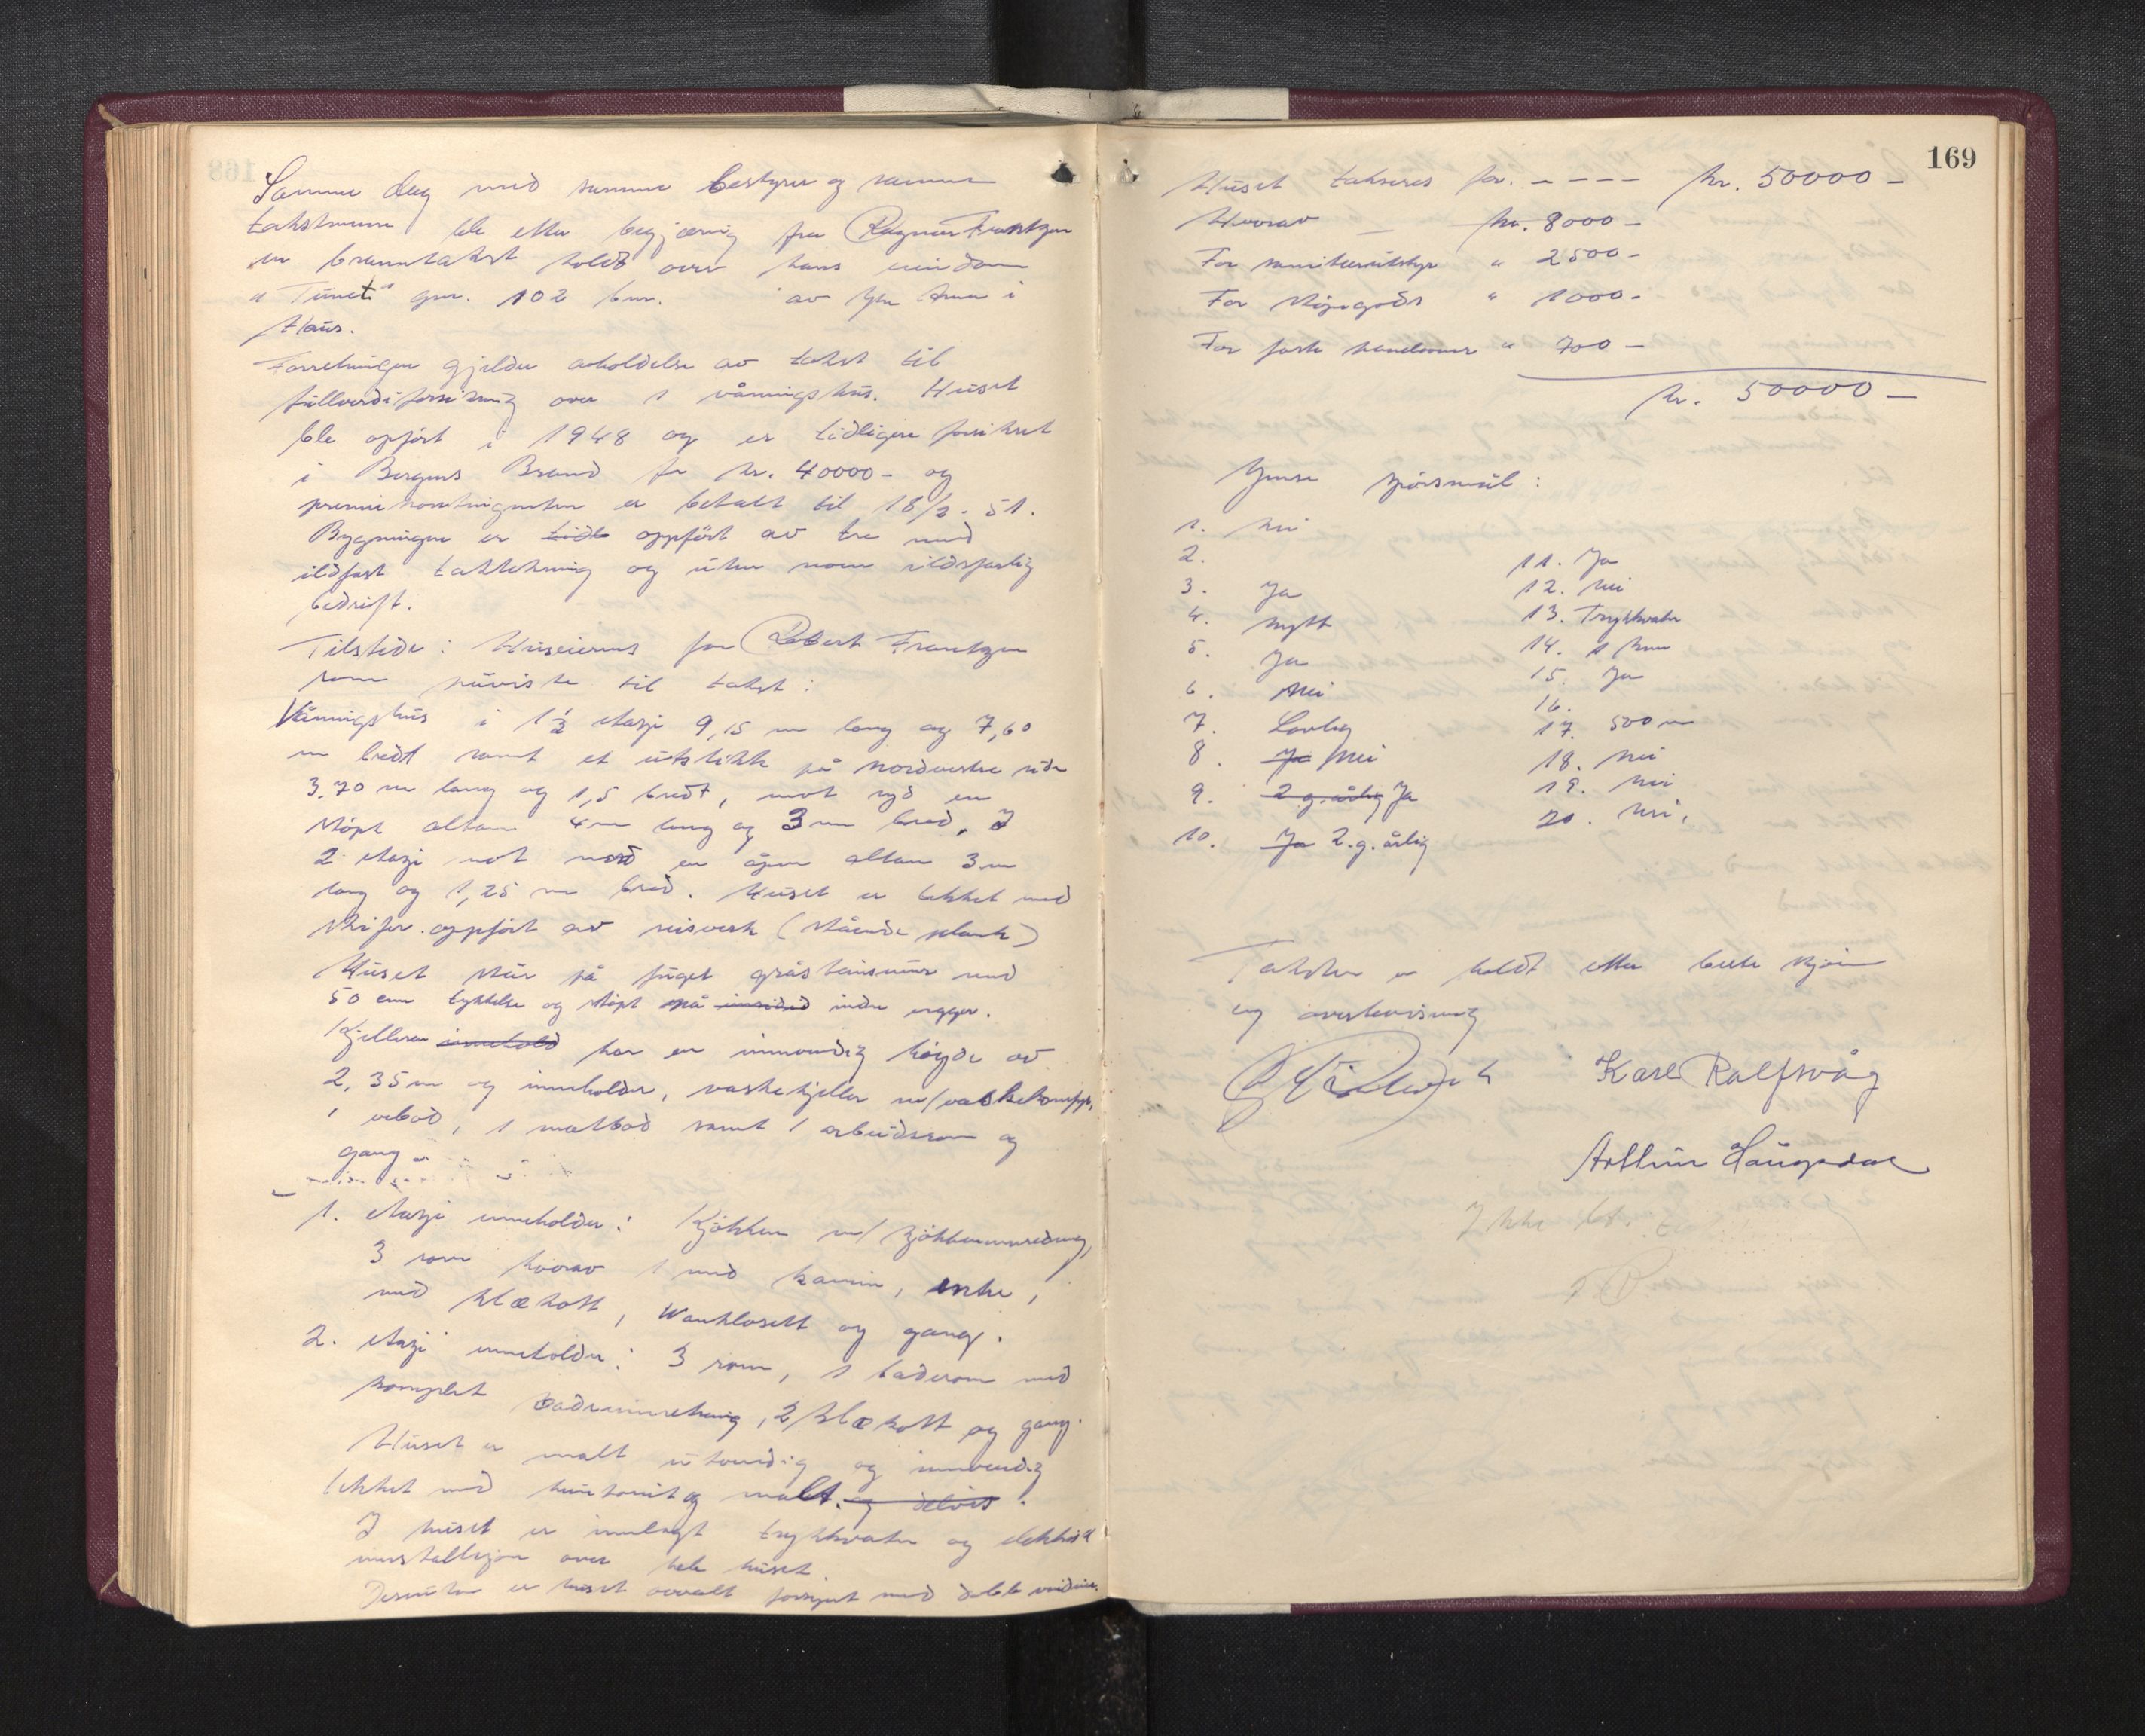 Samme dag med samme bestyrer og samme
takstmenn ble etter begjæring fra Ragnar Frantzen
en branntakst holdt over hans eiendom
"Tunet" gnr. 102 bnr. av Ytre Arna i
Haus.
Forretningen gjelder avholdelse av takst til
fullverdiforsikring over 1 våningshus. Huset
ble oppført i 1948 og er tidligere forsikret
i Bergens Brand for kr. 40000- og
premiekontingenten er betalt til 18/3-51.
Bygningen er tidl oppført av tre med
ildfast taktekning og uten noen ildsfarlig
bedrift.
Tilstede: Huseierens far Robert Frantzen
som påviste til takst:
Våningshus i 1½ etasje 9,15 m lang og 7,60
m bredt samt et utstikk på nordvestre side
3,70 m lang og 1,5 bredt, mot syd en
støpt altan 4 m lang og 3 m bred. I
2. etasje mot nord en åpen altan 3 m
lang og 1,25 m bred. Huset er tekket med
skifer. oppført av reisverk (stående plank)
Huset står på fuget gråsteinsmur med
50 cm tykkelse og støpt på innsided indre vegger.
Kjelleren innehold har en innvendig høyde av
2,35 m og inneholder, vaskekjeller m/vaskekomfyr,
1 vebod, 1 matbod samt 1 arbeidsrom og
gang
1. etasje inneholder: Kjøkken m/ kjøkkeninnredning,
3 rom hvorav 1 med kamin, entre,
med klækott, Wanklosett og gang.
2. etasje inneholder: 3 rom, 1 baderom med
komplet badeinnretning, 2 klækott og gang.
Huset er malt utvendig og innvendig
tekket med huntonit og malt. og delvis.
I huset er innlagt trykkvatn og elektrisk
innstallasjon over hele huset.
Desuten er huset overalt forsynt med doble vinduer.
169
Huset takseres for. ---- kr. 50000-
Hvorav kr. 8000-
For sanitærutstyr " 2500-
For støpegods " 1000-
For faste ledninger " 700-
kr. 50000-
Ymse spørsmål:
1. Nei
2.
3. Ja
4. Nytt
5. Ja
6. Nei
7. Lovlig
8. Ja Nei
9. 2 g. årlig Ja
10. Ja 2. g. årlig
11. Ja
12. Nei
13. Trykkvatn
14. 1 km
15. Ja
16.
17. 500 m
18. Nei
19. Nei
20. Nei.
Taksten er holdt etter beste skjønn
og overbevisning
Karl Ralfsvåg
Arthur Haugsdal
Ikke bt.